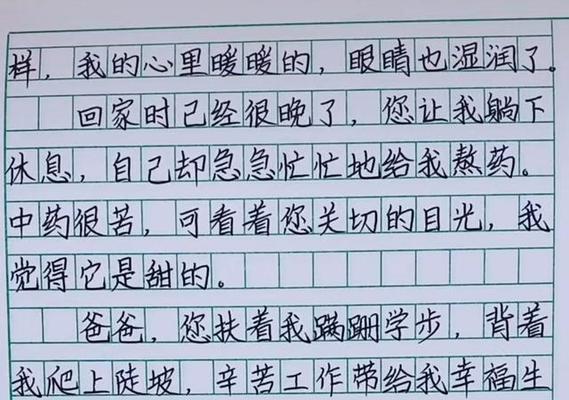 样，我的心里暖暖的，眼睛也湿润了。
回家时已经很晚了，您让我躺下
休息，自己却急急忙忙地给我熬药。
中药很苦，可看着您关切的目光，我
觉得它是甜的。
爸爸，您扶着我蹒跚学步，背着
我爬上陡坡，辛苦工作带给我幸福生